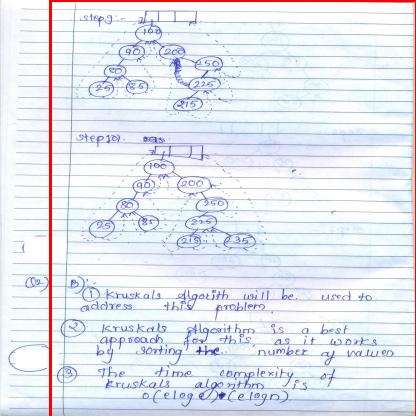 step9:-
100
90 200
80 250
25 85 225
215
step10:-
100
90 200
80 250
25 85 225
215 235
Q2) B):-
① Kruskals Algorith will be used to
address this problem
② Kruskals Algorithm is a best
approach for this, as it works
by sorting the number of values
③ The time complexity of
Kruskals algorithm is
O(e log e) (e log n)